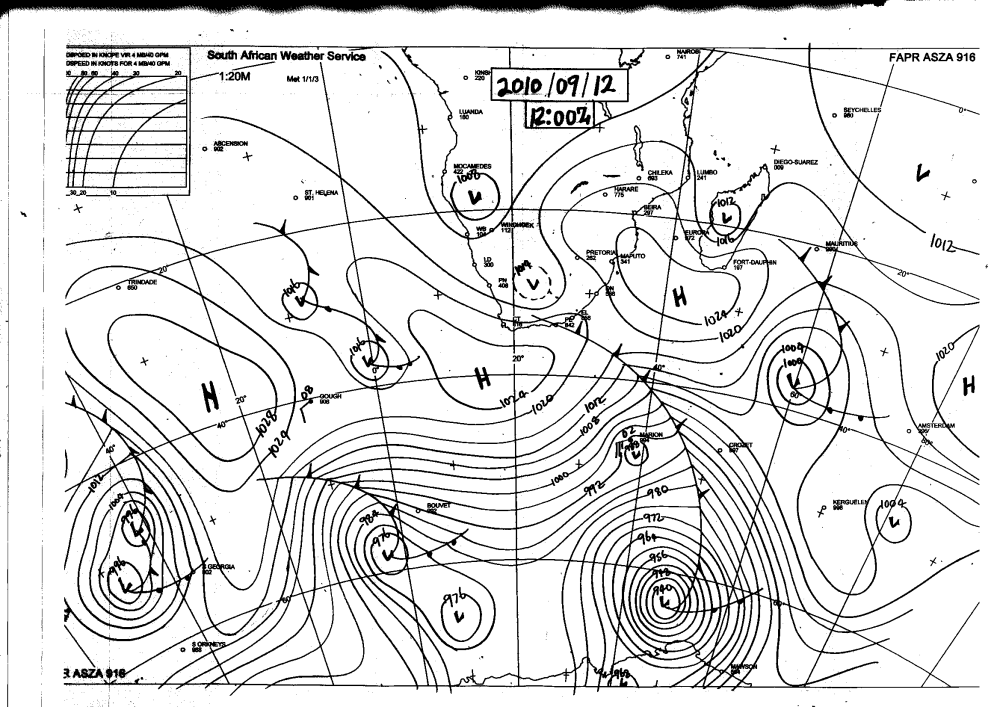 South African Weather Service
1:20M Met 1/1/3
2010/09/12
12:00Z
FAPR ASZA 916
DSPEED IN KNOTS FOR 4 MB/40 GPM
80 60 40 30 20
30 20 10
NAIROBI
741
LUANDA
SEYCHELLES
980
0°
ASCENSION
902
MOCAMEDES
422
1008
L
CHILEKA
693
LUMBO
241
DIEGO-SUAREZ
009
L
ST. HELENA
901
HARARE
775
BEIRA
297
1012
L
1016
WINDHOEK
112
EUROPA
972
MAURITIUS
1012
PRETORIA
262
MAPUTO
341
FORT-DAUPHIN
197
LD
300
20°
20°
TRINDADE
650
1016
L
PN
408
L
DN
H
1024
1020
CT
PE
842
EL
1016
L
0°
20°
40°
1004
1000
L
60°
1020
H
H
20°
H
1024
1020
1012
1008
08
GOUGH
906
40°
1028
1024
02
MARION
994
988
L
CROZET
997
40°
AMSTERDAM
60°
40°
1012
1004
996
L
1000
992
980
972
964
956
948
940
L
KERGUELEN
998
1004
L
BOUVET
984
976
L
996
L
S GEORGIA
976
L
60
60
S ORKNEYS
968
968
L
MAWSON
R ASZA 916